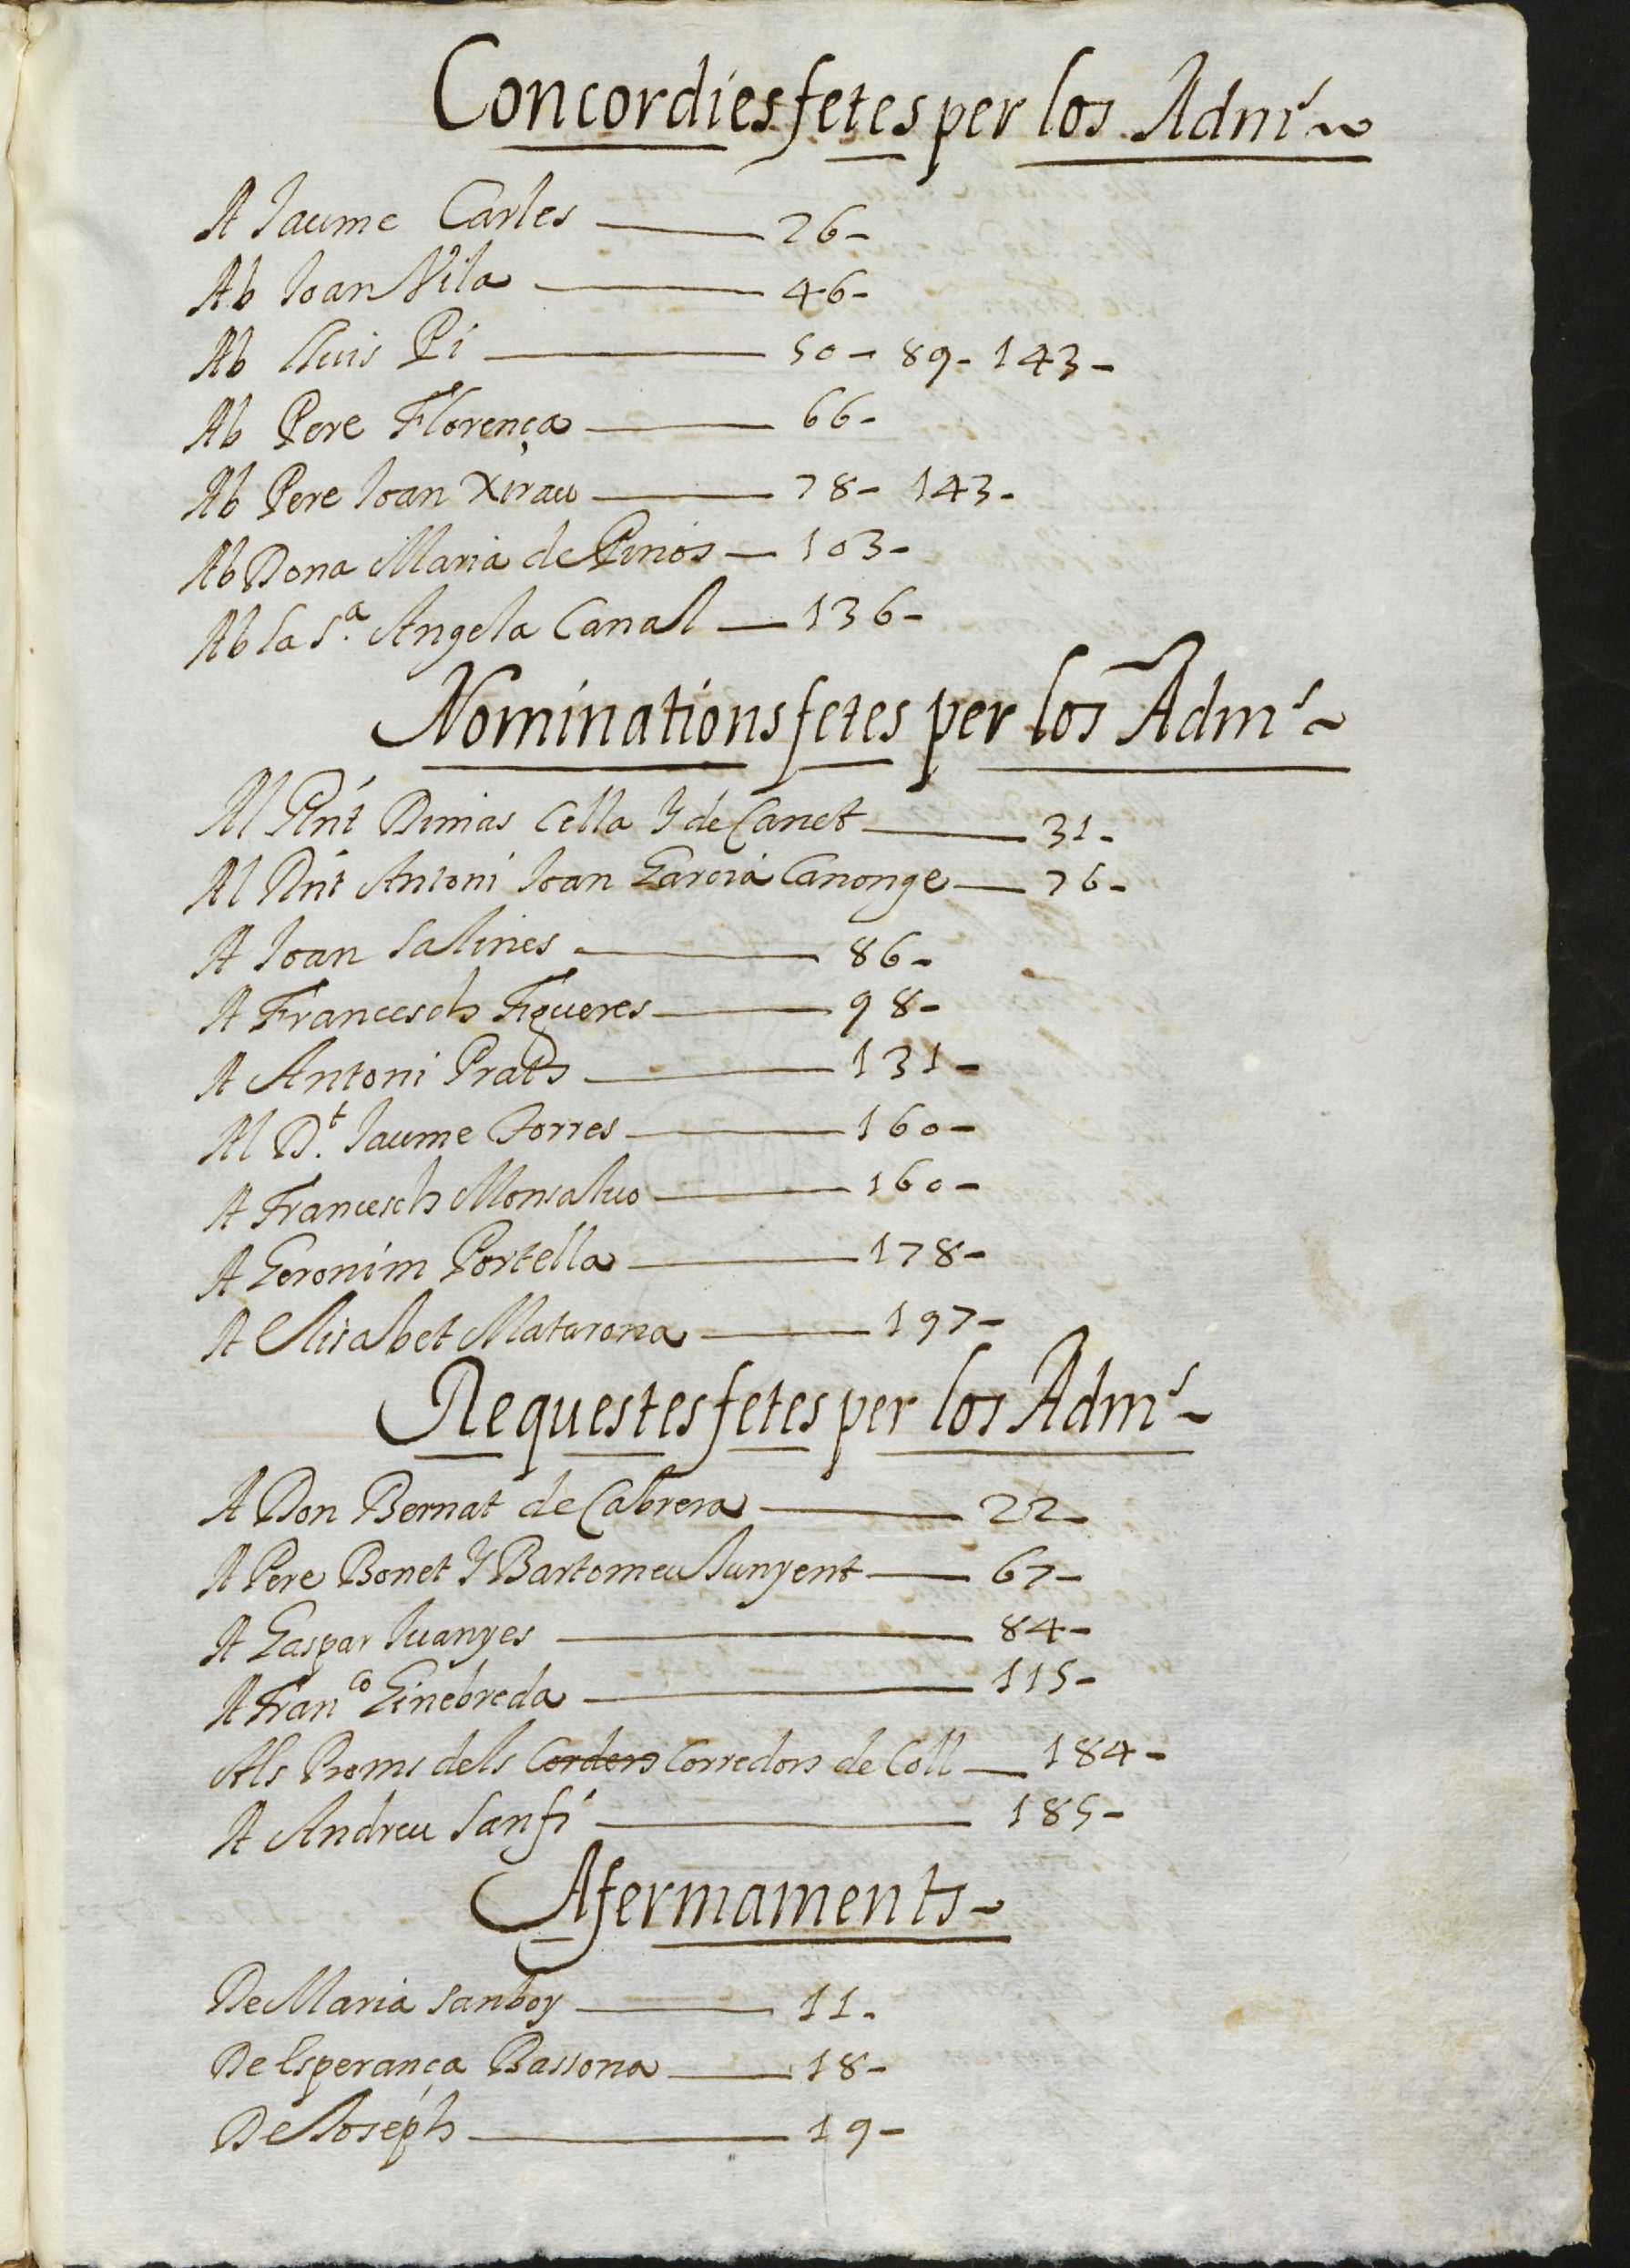 Concordies fetes per los Admrs
A Jaume Carles — 26-
Ab Joan Vila — 46-
Ab Lluis Pi — 50- 89- 143-
Ab Pere Florença — 66-
Ab Pere Joan Xirau — 78- 143-
Ab Dona Maria de Pinos — 103-
Ab la Sa. Angela Canal — 136-
Nominations fetes per los Admrs
Al Dimas Cella y de Canet — 31-
Al Antoni Joan Garcia Canonge — 76-
A Joan Salines — 86-
A Francesch Figueres — 98-
A Antoni Prats — 131-
Al Dt. Jaume Torres — 160-
A Francesch Monsalvo — 160-
A Geronim Portella — 178-
A Elisabet Matarona — 197-
Requestes fetes per los Admrs
A Don Bernat de Cabrera — 22-
A Pere Bonet y Bartomeu Junyent — 67-
A Gaspar Juanyes — 84-
A Franco Ginebreda — 115-
Als Proms dels Corders Corredors de Coll — 184-
A Andreu Sanfi — 185-
Afermaments
De Maria Sanboy — 11-
De Esperança Bassona — 18-
De Joseph — 19-